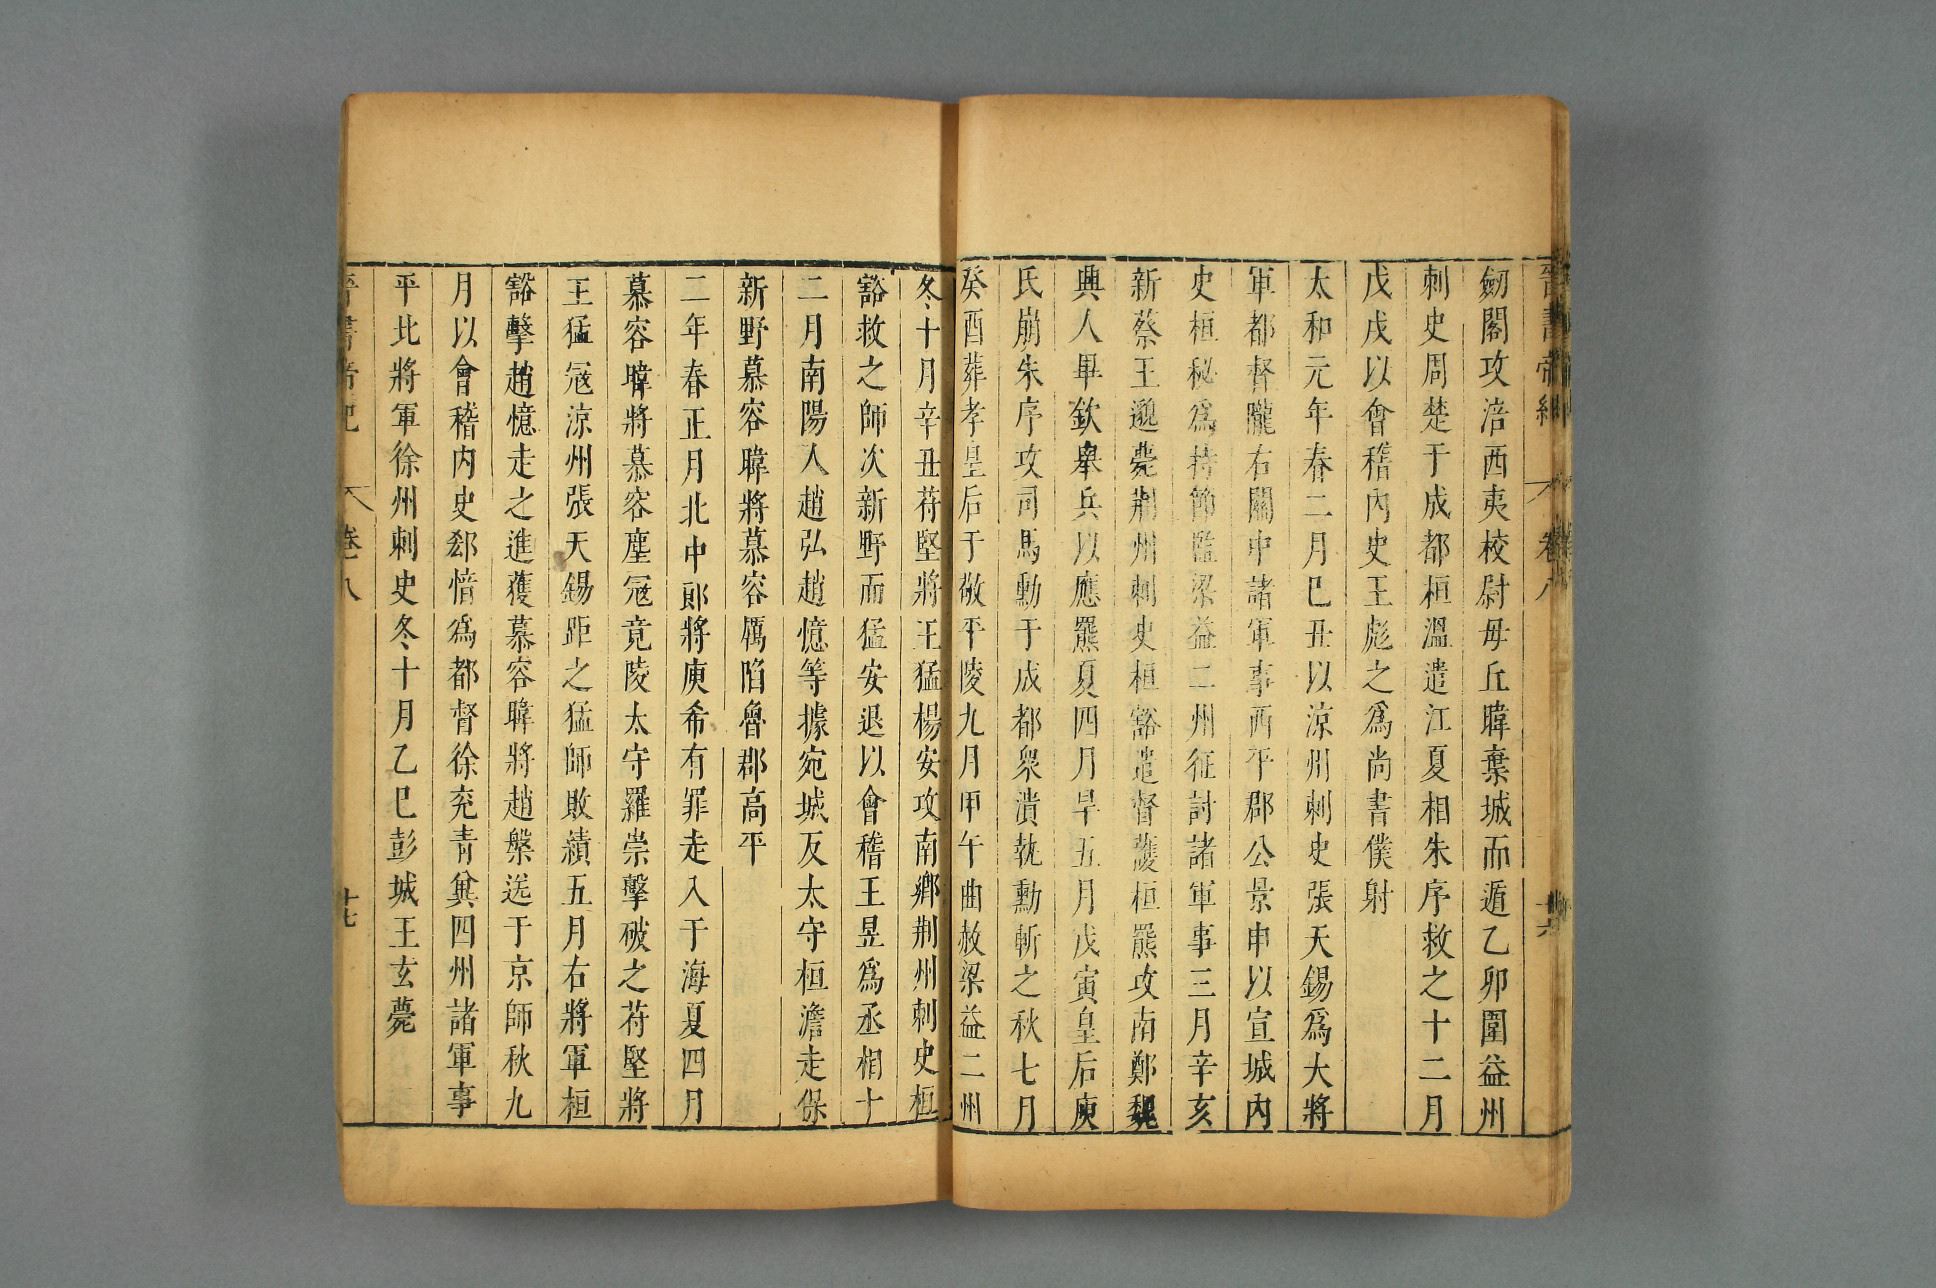 晉書帝紀 卷八 十六
劒閣攻涪西夷校尉毋丘暐棄城而遁乙卯圍益州
刺史周楚于成都桓溫遣江夏相朱序救之十二月
戊戌以會稽內史王彪之爲尚書僕射
太和元年春二月巳丑以涼州刺史張天錫爲大將
軍都督隴右關中諸軍事西平郡公景申以宣城內
史桓秘爲持節監梁益二州征討諸軍事三月辛亥
新蔡王邈薨荆州刺史桓豁遣督護桓羆攻南鄭魏
興人畢欽舉兵以應羆夏四月旱五月戊寅皇后庾
氏崩朱序攻司馬勳于成都衆潰執勳斬之秋七月
癸酉葬孝皇后于敬平陵九月甲午曲赦梁益二州
冬十月辛丑苻堅將王猛楊安攻南鄉荆州刺史桓
豁救之師次新野而猛安退以會稽王昱爲丞相十
二月南陽人趙弘趙憶等據宛城反太守桓澹走保
新野慕容暐將慕容厲陷魯郡高平
二年春正月北中郎將庾希有罪走入于海夏四月
慕容暐將慕容塵寇竟陵太守羅崇擊破之苻堅將
王猛寇涼州張天錫距之猛師敗績五月右將軍桓
豁擊趙憶走之進獲慕容暐將趙槃送于京師秋九
月以會稽內史郄愔爲都督徐兖青兾四州諸軍事
平北將軍徐州刺史冬十月乙巳彭城王玄薨
晉書帝紀 卷八 十七